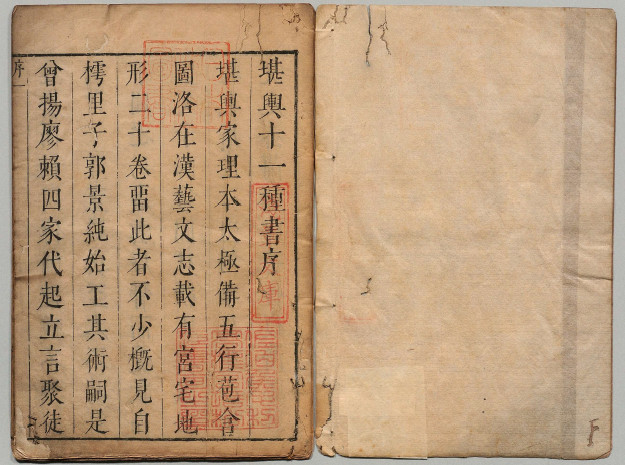 堪輿十一種書序
堪輿家理本太極備五行苞含
圖洛在漢藝文志載有宮宅地
形二十卷畱此者不少槪見自
樗里子郭景純始工其術嗣是
曾揚廖賴四家代起立言聚徒
序
一